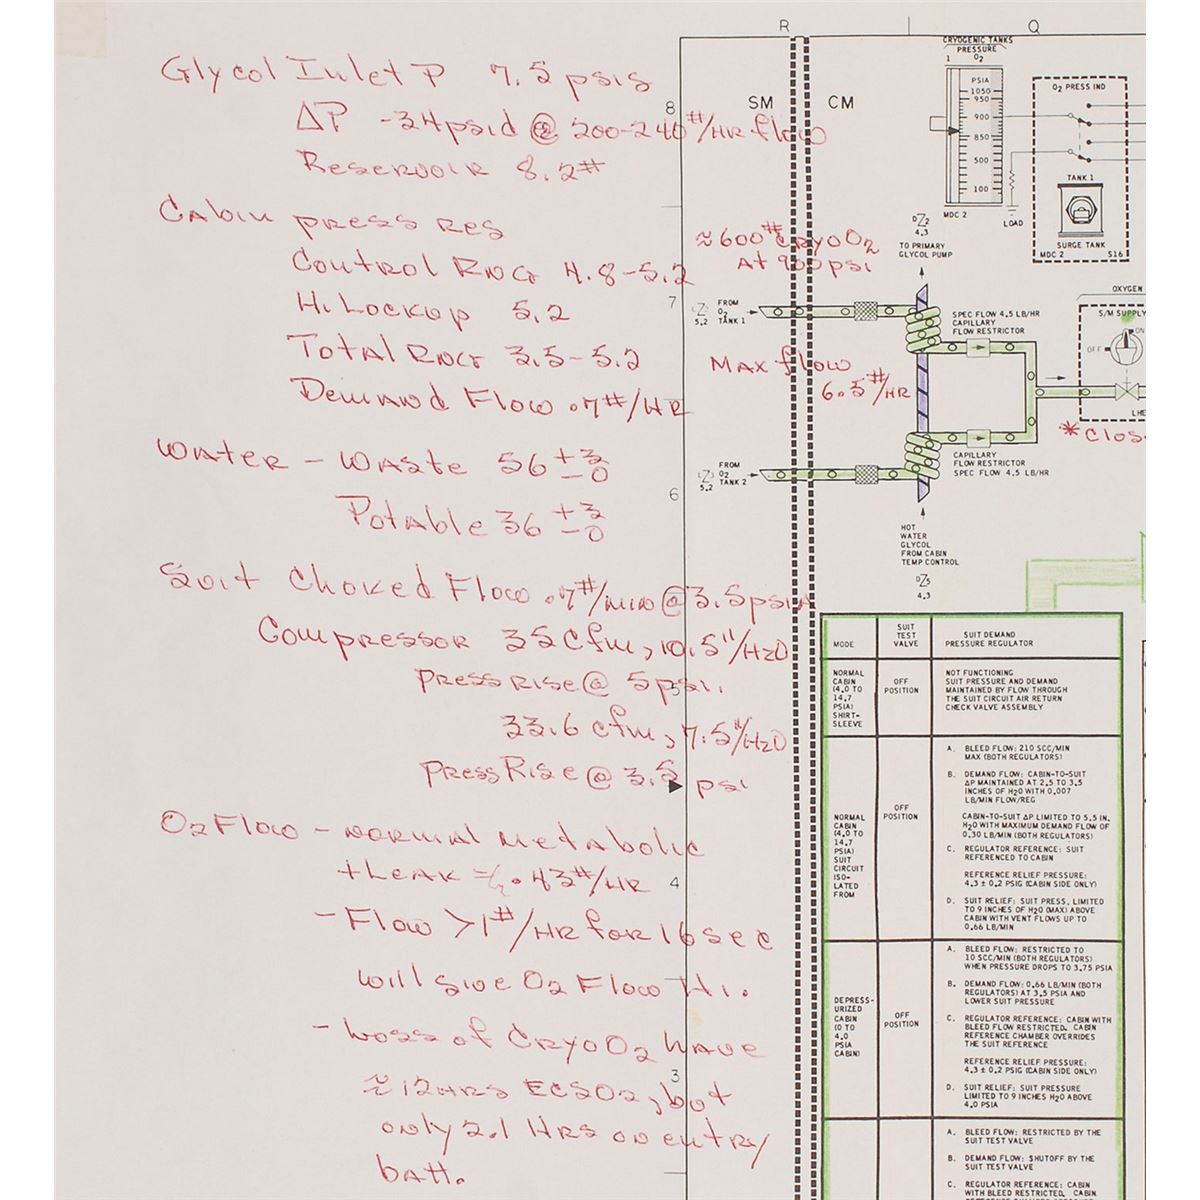 Glycol Inlet P 7.5 psig
ΔP -34psid @ 200-240#/HR flow
Reservoir 8.2#
Cabin press reg
Control Rng 4.8-5.2
Hi Lockup 5.2
Total Rng 3.5-5.2
Demand Flow .7#/HR
Water - Waste 56 +3 -0
Potable 36 +3 -0
Suit Choked Flow .7#/min @ 3.5psia
Compressor 35 cfm, 10.5"/H2O
Press rise @ 5psi.
33.6 cfm, 7.5"/H2O
Press Rise @ 3.5 psi
O2 Flow - normal metabolic
+ Leak ≈ .43#/HR
- Flow >1#/HR for 16 sec
will give O2 Flow Hi.
- Loss of Cryo O2 have
≈12HRS ECS O2, but
only 2.1 Hrs on entry
batt.
R
Q
8
7
6
5
4
3
SM
CM
≈600# cryo O2
At 900 psi
Max flow
6.5#/HR
CRYOGENIC TANKS
PRESSURE
1 O2
PSIA
1050
950
900
850
500
100
MDC 2
O2 PRESS IND
LOAD
TANK 1
SURGE TANK
MDC 2 S16
Z2
4.3
TO PRIMARY
GLYCOL PUMP
Z
5.2
FROM
O2
TANK 1
SPEC FLOW 4.5 LB/HR
CAPILLARY
FLOW RESTRICTOR
OXYGEN
S/M SUPPLY
ON
OFF
LHE
*Clos
Z
5.2
FROM
O2
TANK 2
CAPILLARY
FLOW RESTRICTOR
SPEC FLOW 4.5 LB/HR
HOT
WATER
GLYCOL
FROM CABIN
TEMP CONTROL
Z3
4.3
MODE
SUIT
TEST
VALVE
SUIT DEMAND
PRESSURE REGULATOR
NORMAL
CABIN
(4.0 TO
14.7
PSIA)
SHIRT-
SLEEVE
OFF
POSITION
NOT FUNCTIONING
SUIT PRESSURE AND DEMAND
MAINTAINED BY FLOW THROUGH
THE SUIT CIRCUIT AIR RETURN
CHECK VALVE ASSEMBLY
NORMAL
CABIN
(4.0 TO
14.7
PSIA)
SUIT
CIRCUIT
ISO-
LATED
FROM
OFF
POSITION
A. BLEED FLOW: 210 SCC/MIN
MAX (BOTH REGULATORS)
B. DEMAND FLOW: CABIN-TO-SUIT
ΔP MAINTAINED AT 2.5 TO 3.5
INCHES OF H2O WITH 0.007
LB/MIN FLOW/REG
CABIN-TO-SUIT ΔP LIMITED TO 5.5 IN.
H2O WITH MAXIMUM DEMAND FLOW OF
0.30 LB/MIN (BOTH REGULATORS)
C. REGULATOR REFERENCE: SUIT
REFERENCED TO CABIN
REFERENCE RELIEF PRESSURE:
4.3 ± 0.2 PSIG (CABIN SIDE ONLY)
D. SUIT RELIEF: SUIT PRESS. LIMITED
TO 9 INCHES OF H2O (MAX) ABOVE
CABIN WITH VENT FLOWS UP TO
0.66 LB/MIN
DEPRESS-
URIZED
CABIN
(0 TO
4.0
PSIA
CABIN)
OFF
POSITION
A. BLEED FLOW: RESTRICTED TO
10 SCC/MIN (BOTH REGULATORS)
WHEN PRESSURE DROPS TO 3.75 PSIA
B. DEMAND FLOW: 0.66 LB/MIN (BOTH
REGULATORS) AT 3.5 PSIA AND
LOWER SUIT PRESSURE
C. REGULATOR REFERENCE: CABIN WITH
BLEED FLOW RESTRICTED. CABIN
REFERENCE CHAMBER OVERRIDES
THE SUIT REFERENCE
REFERENCE RELIEF PRESSURE:
4.3 ± 0.2 PSIG (CABIN SIDE ONLY)
D. SUIT RELIEF: SUIT PRESSURE
LIMITED TO 9 INCHES H2O ABOVE
4.0 PSIA
A. BLEED FLOW: RESTRICTED BY THE
SUIT TEST VALVE
B. DEMAND FLOW: SHUTOFF BY THE
SUIT TEST VALVE
C. REGULATOR REFERENCE: CABIN
WITH BLEED RESTRICTED. CABIN